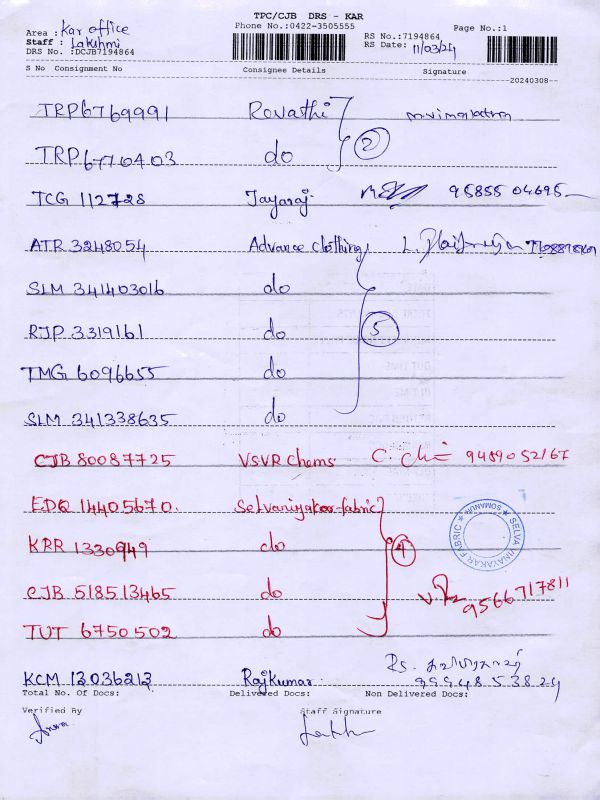 TPC/CJB DRS - KAR
Phone No.:0422-3505555
Page No.:1
Area : Kar office
Staff : Lakshmi
DRS No. :DCJB7194864
RS No.:7194864
RS Date: 11/03/24
S No Consignment No Consignee Details Signature
20240308
TRP6769991 Revathi
TRP6770403 do 2
TCG 112728 Jayaraj 95855 04695
ATR 3248054 Advance clothing
SLM 341403016 do
RJP 3319161 do 5
TMG 6096655 do
SLM 341338635 do
CJB 80087725 VSVR Chems 9489052167
EDQ 14405670. Selvaniyakar fabric
SELVA VINAYAKAR FABRIC ★ SOMANUR ★
KRR 1330949 do 4
CJB 518513465 do 9566717811
TUT 6750502 do
KCM 12036213 Rajkumar 9994853824
Total No. Of Docs: Delivered Docs: Non Delivered Docs:
Verified By Staff Signature